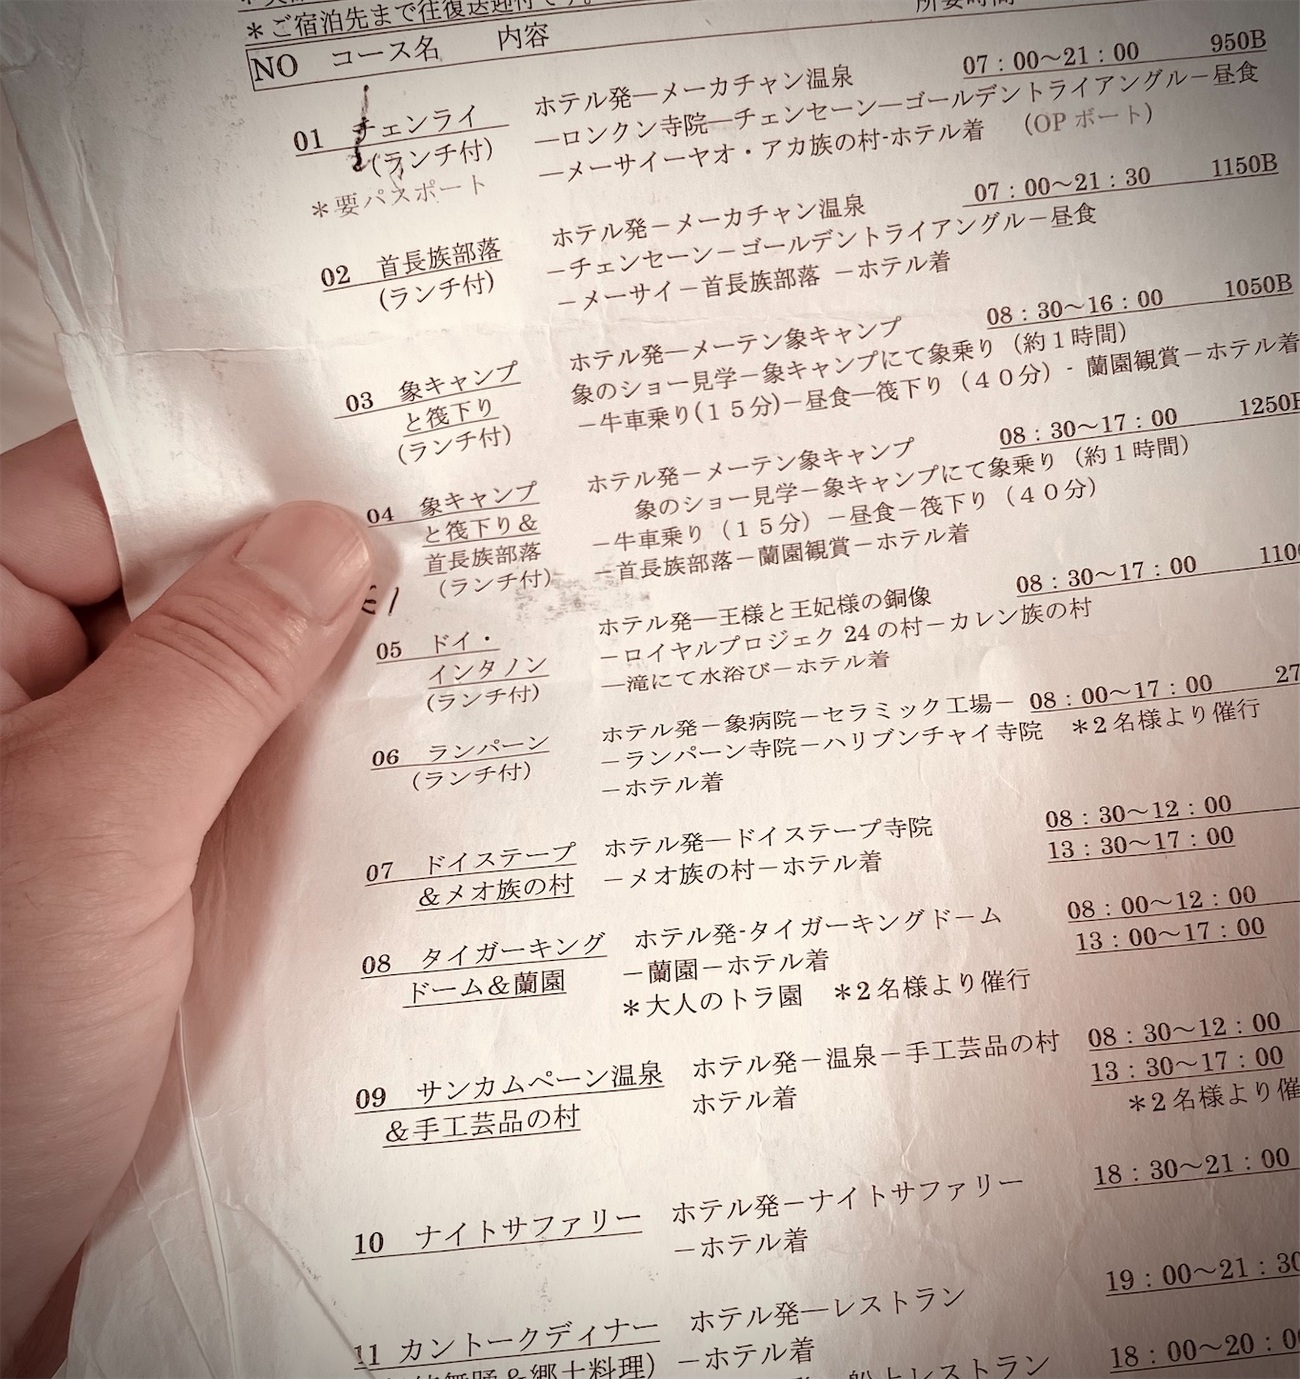 ＊ご宿泊先まで往復送迎付です。
NO コース名 内容 所要時間
01 チェンライ ホテル発―メーカチャン温泉 07：00～21：00 950B
(ランチ付) ―ロンクン寺院―チェンセーン―ゴールデントライアングル－昼食
＊要パスポート ―メーサイーヤオ・アカ族の村-ホテル着 （OP ボート）
02 首長族部落 ホテル発－メーカチャン温泉 07：00～21：30 1150B
(ランチ付) －チェンセーン－ゴールデントライアングル－昼食
－メーサイ－首長族部落 －ホテル着
03 象キャンプ ホテル発―メーテン象キャンプ 08：30～16：00 1050B
と筏下り 象のショー見学－象キャンプにて象乗り（約１時間）
(ランチ付) －牛車乗り(１５分)－昼食―筏下り（４０分）- 蘭園観賞－ホテル着
04 象キャンプ ホテル発－メーテン象キャンプ 08：30～17：00 1250B
と筏下り＆ 象のショー見学－象キャンプにて象乗り（約１時間）
首長族部落 －牛車乗り（１５分）－昼食－筏下り（４０分）
(ランチ付) －首長族部落－蘭園観賞－ホテル着
05 ドイ・ ホテル発―王様と王妃様の銅像 08：30～17：00 1100
インタノン －ロイヤルプロジェク 24 の村－カレン族の村
(ランチ付) ―滝にて水浴び－ホテル着
06 ランパーン ホテル発－象病院－セラミック工場－ 08：00～17：00 27
(ランチ付) －ランパーン寺院－ハリブンチャイ寺院 ＊2 名様より催行
－ホテル着
07 ドイステープ ホテル発―ドイステープ寺院 08：30～12：00
＆メオ族の村 －メオ族の村－ホテル着 13：30～17：00
08 タイガーキング ホテル発-タイガーキングドーム 08：00～12：00
ドーム＆蘭園 －蘭園－ホテル着 13：00～17：00
＊大人のトラ園 ＊2 名様より催行
09 サンカムペーン温泉 ホテル発－温泉－手工芸品の村 08：30～12：00
＆手工芸品の村 ホテル着 13：30～17：00
＊2 名様より催
10 ナイトサファリー ホテル発－ナイトサファリー 18：30～21：00
－ホテル着
11 カントークディナー ホテル発―レストラン 19：00～21：30
舞踊＆郷土料理） －ホテル着 18：00～20：00
船上レストラン